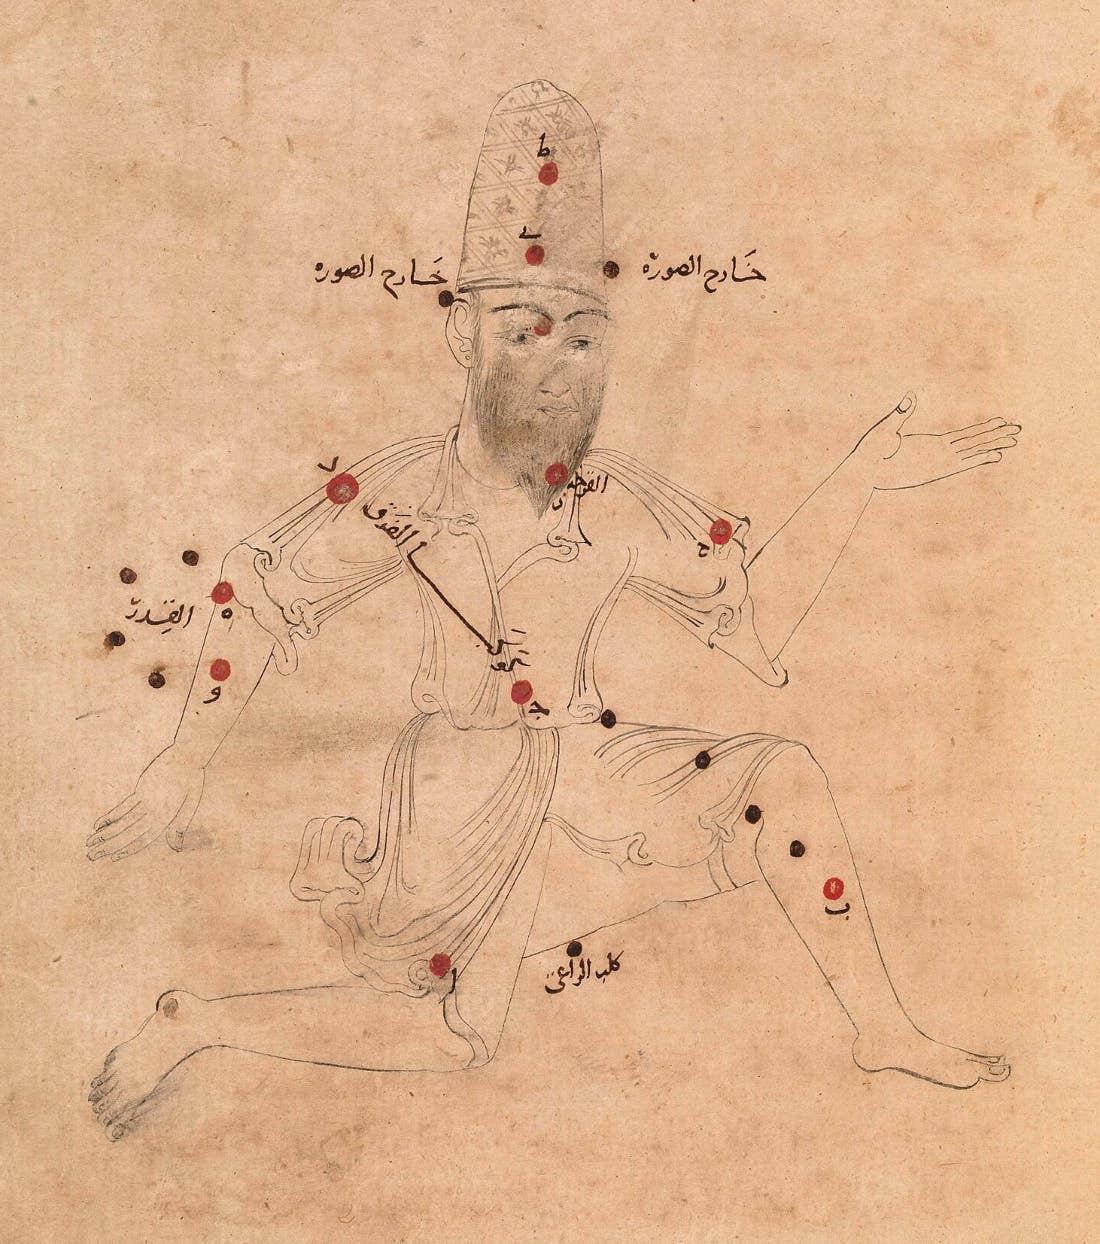 ط
ے
خَارج الصورّه
خَارج الصوره
القرحه
ز
د
الفَرق
ح
القِدرّ
ه
و
ج
ب
كلب الراعى
ا